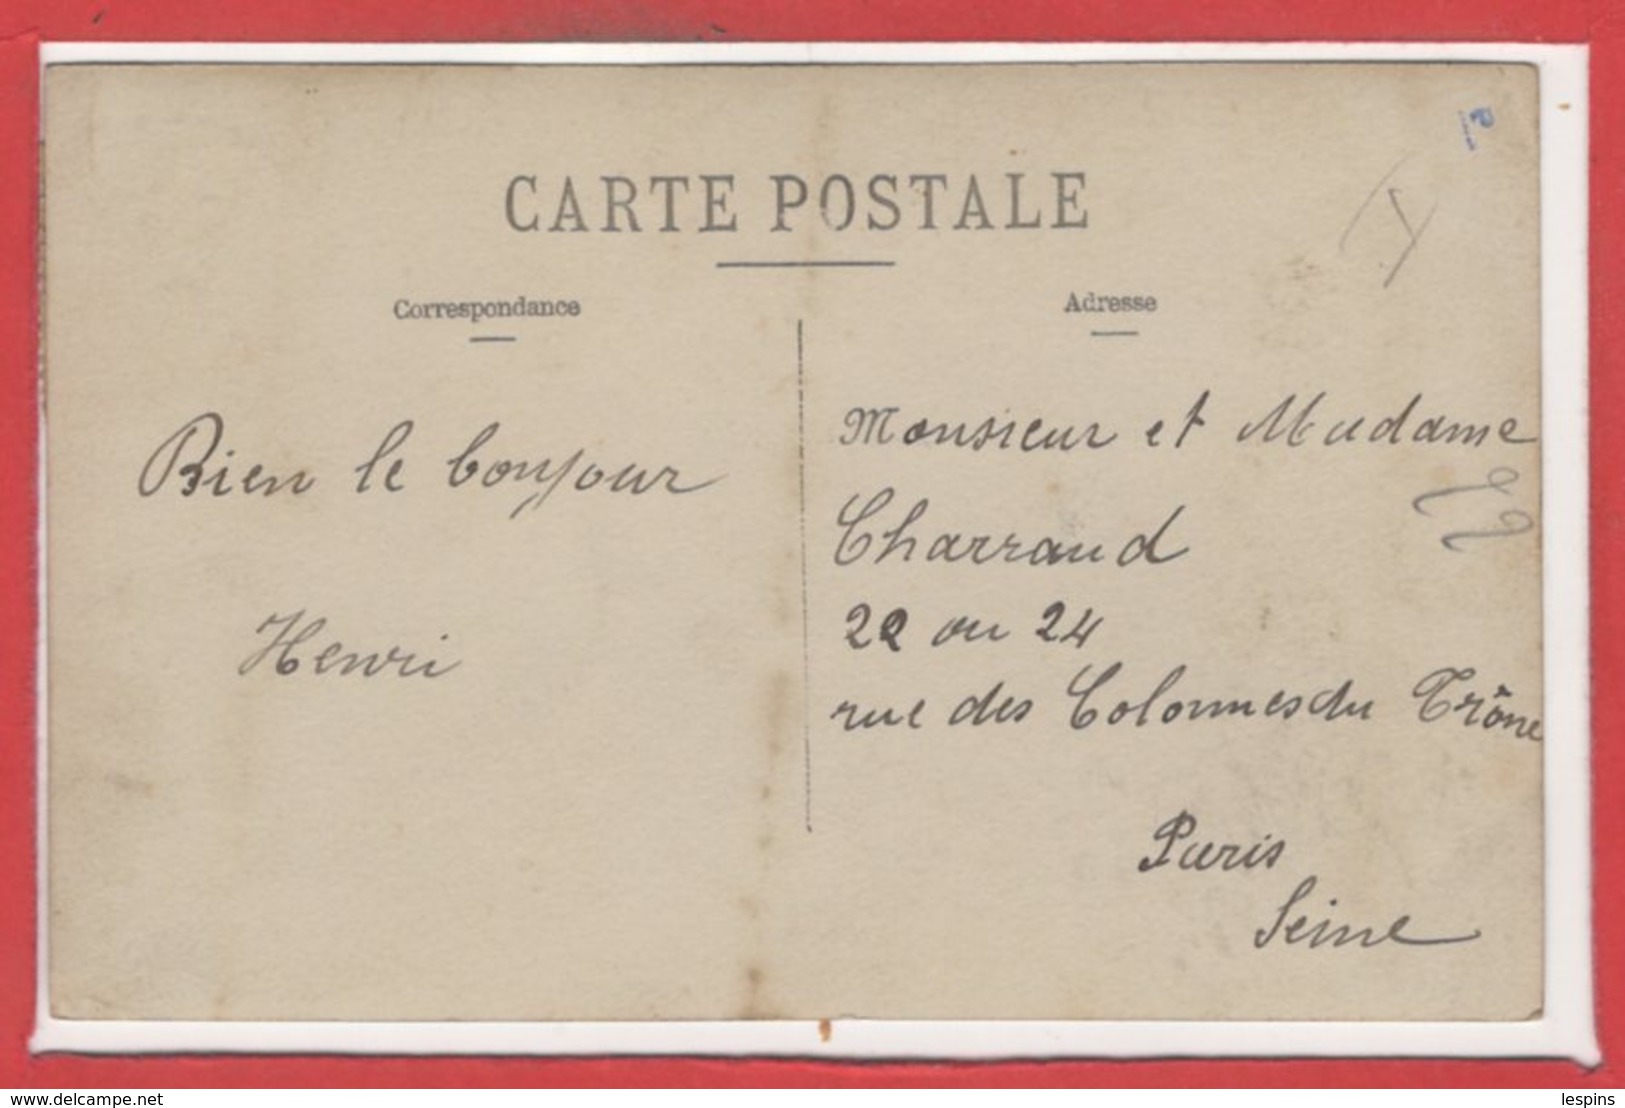 P
CARTE POSTALE
Correspondance
Adresse
Bien le bonjour
Henri
Monsieur et Madame
Charraud
22 ou 24
rue des Colonnes du Trône
Paris
Seine
www.delcampe.net
lespins